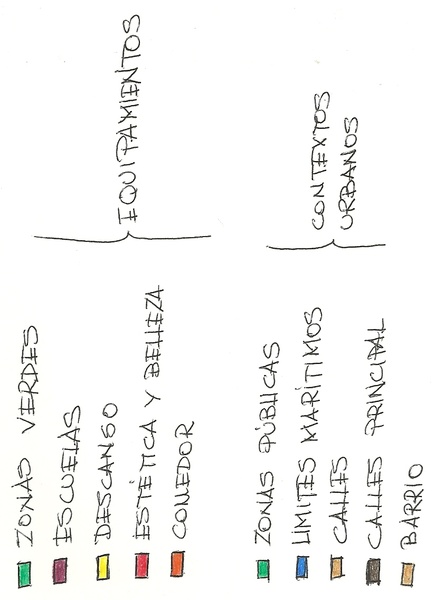 ZONAS VERDES
ESCUELAS
DESCANSO
ESTÉTICA Y BELLEZA
COMEDOR
EQUIPAMIENTOS
ZONAS PÚBLICAS
LÍMITES MARÍTIMOS
CALLES
CALLES PRINCIPAL
BARRIO
CONTEXTOS
URBANOS